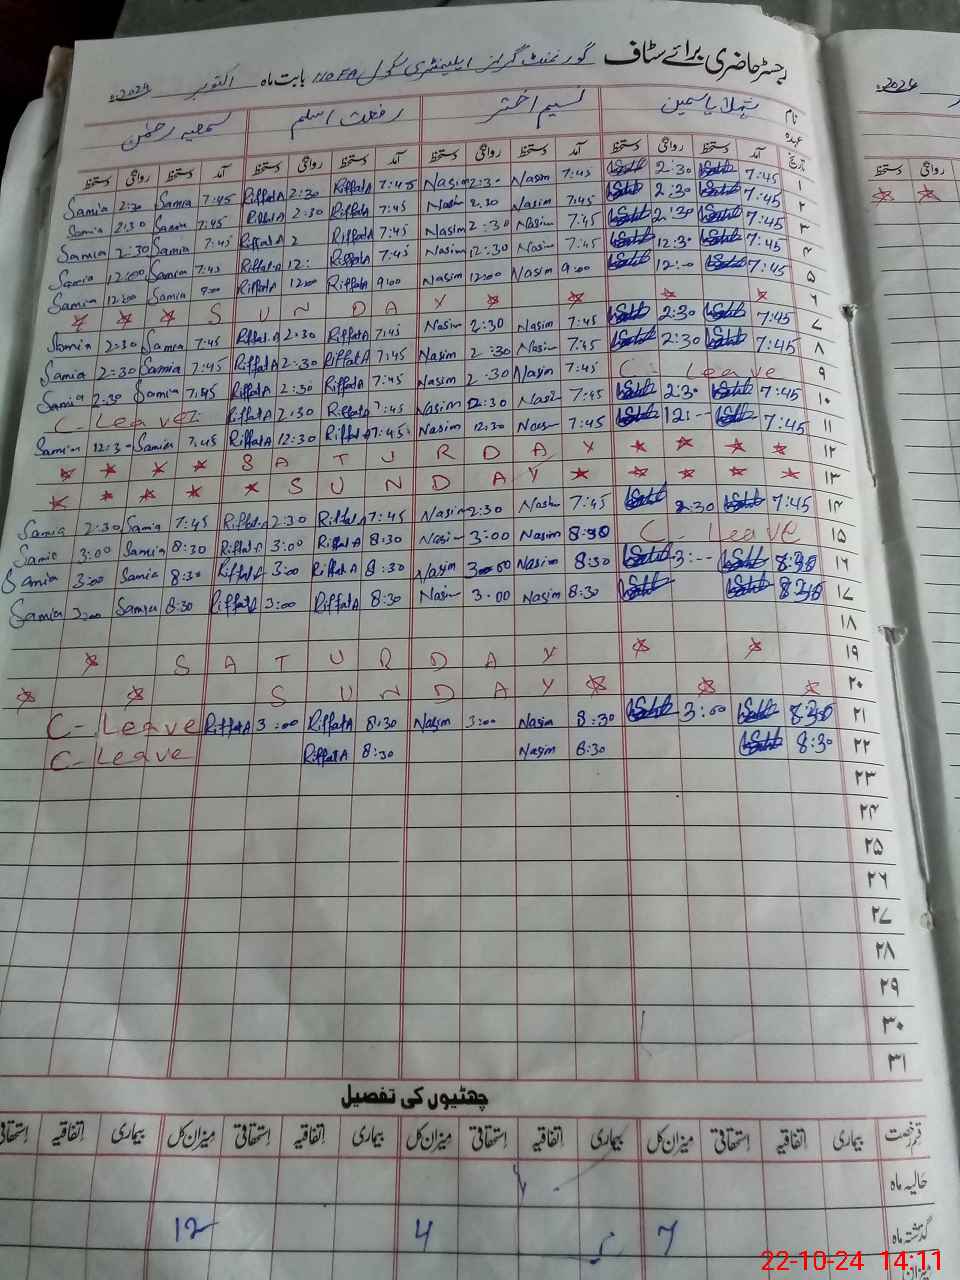 رجسٹر حاضری برائے سٹاف گورنمنٹ گرلز ایلیمنٹری سکول بابت ماہ اکتوبر 2024ء
نام یاسمین نسیم اختر رفعت اسلم سمعیہ رحمٰن
عہدہ
تاریخ آمد دستخط روانگی دستخط آمد دستخط روانگی دستخط آمد دستخط روانگی دستخط آمد دستخط روانگی دستخط
۱ 7:45 2:30 7:45 Nasim 2:30 Nasim 7:45 RiffatA 2:30 RiffatA 7:45 Samia 2:30 Samia
۲ 7:45 2:30 7:45 Nasim 2:30 Nasim 7:45 RiffatA 2:30 RiffatA 7:45 Samia 2:30 Samia
۳ 7:45 2:30 7:45 Nasim 2:30 Nasim 7:45 RiffatA 2 RiffatA 7:45 Samia 2:30 Samia
۴ 7:45 12:30 7:45 Nasim 12:30 Nasim 7:45 RiffatA 12: RiffatA 7:45 Samia 12:00 Samia
۵ 7:45 12:-- 9:00 Nasim 12:00 Nasim 9:00 RiffatA 12:00 RiffatA 9:00 Samia 12:00 Samia
۶ S U N D A Y
۷ 7:45 2:30 7:45 Nasim 2:30 Nasim 7:45 RiffatA 2:30 RiffatA 7:45 Samia 2:30 Samia
۸ 7:45 2:30 7:45 Nasim 2:30 Nasim 7:45 RiffatA 2:30 RiffatA 7:45 Samia 2:30 Samia
۹ C- Leave 7:45 Nasim 2:30 Nasim 7:45 RiffatA 2:30 RiffatA 7:45 Samia 2:30 Samia
۱۰ 7:45 2:30 7:45 Nasim 2:30 Nasim 7:45 RiffatA 2:30 RiffatA C-Leave
۱۱ 7:45 12:-- 7:45 Nasim 12:30 Nasim 7:45 RiffatA 12:30 RiffatA 7:45 Samia 12:3- Samia
۱۲ S A T U R D A Y
۱۳ S U N D A Y
۱۴ 7:45 2:30 7:45 Nasim 2:30 Nasim 7:45 RiffatA 2:30 RiffatA 7:45 Samia 2:30 Samia
۱۵ C- Leave 8:30 Nasim 3:00 Nasim 8:30 RiffatA 3:00 RiffatA 8:30 Samia 3:00 Samia
۱۶ 8:30 3:-- 8:30 Nasim 3:00 Nasim 8:30 RiffatA 3:00 RiffatA 8:30 Samia 3:00 Samia
۱۷ 8:30 8:30 Nasim 3:00 Nasim 8:30 RiffatA 3:00 RiffatA 8:30 Samia 3:00 Samia
۱۸
۱۹ S A T U R D A Y
۲۰ S U N D A Y
۲۱ 8:30 3:00 8:30 Nasim 3:00 Nasim 8:30 RiffatA 3:00 RiffatA C- Leave
۲۲ 8:30 8:30 Nasim 8:30 RiffatA C- Leave
۲۳
۲۴
۲۵
۲۶
۲۷
۲۸
۲۹
۳۰
۳۱
چھٹیوں کی تفصیل
قسم رخصت بیماری اتفاقیہ استحقاقی میزان کل بیماری اتفاقیہ استحقاقی میزان کل بیماری اتفاقیہ استحقاقی میزان کل بیماری اتفاقیہ استحقاقی
حالیہ ماہ
گذشتہ ماہ 7 4 12
میزان
22-10-24 14:11